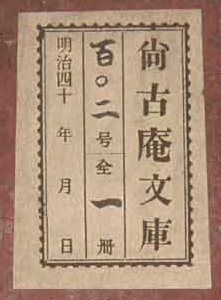 尙古庵文庫
百〇二号全一冊
明治四十年月日